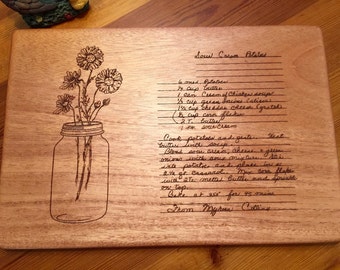 Sour Cream Potatoes
6 med. Potatoes
¼ cup butter
1 can Cream of Chicken soup
⅓ cup green onions
1½ cup cheddar cheese (grated)
¾ cup corn flakes
2 T. butter
1 pt. sour cream
Cook potatoes and grate. Heat
butter with soup.
Blend sour cream, cheese &
onions with soup mixture. Stir
into potatoes and place in a
2½ qt casserole. Mix corn flakes
with 2 T. melted butter and sprinkle
on top.
Bake at 350° for 45 mins
From